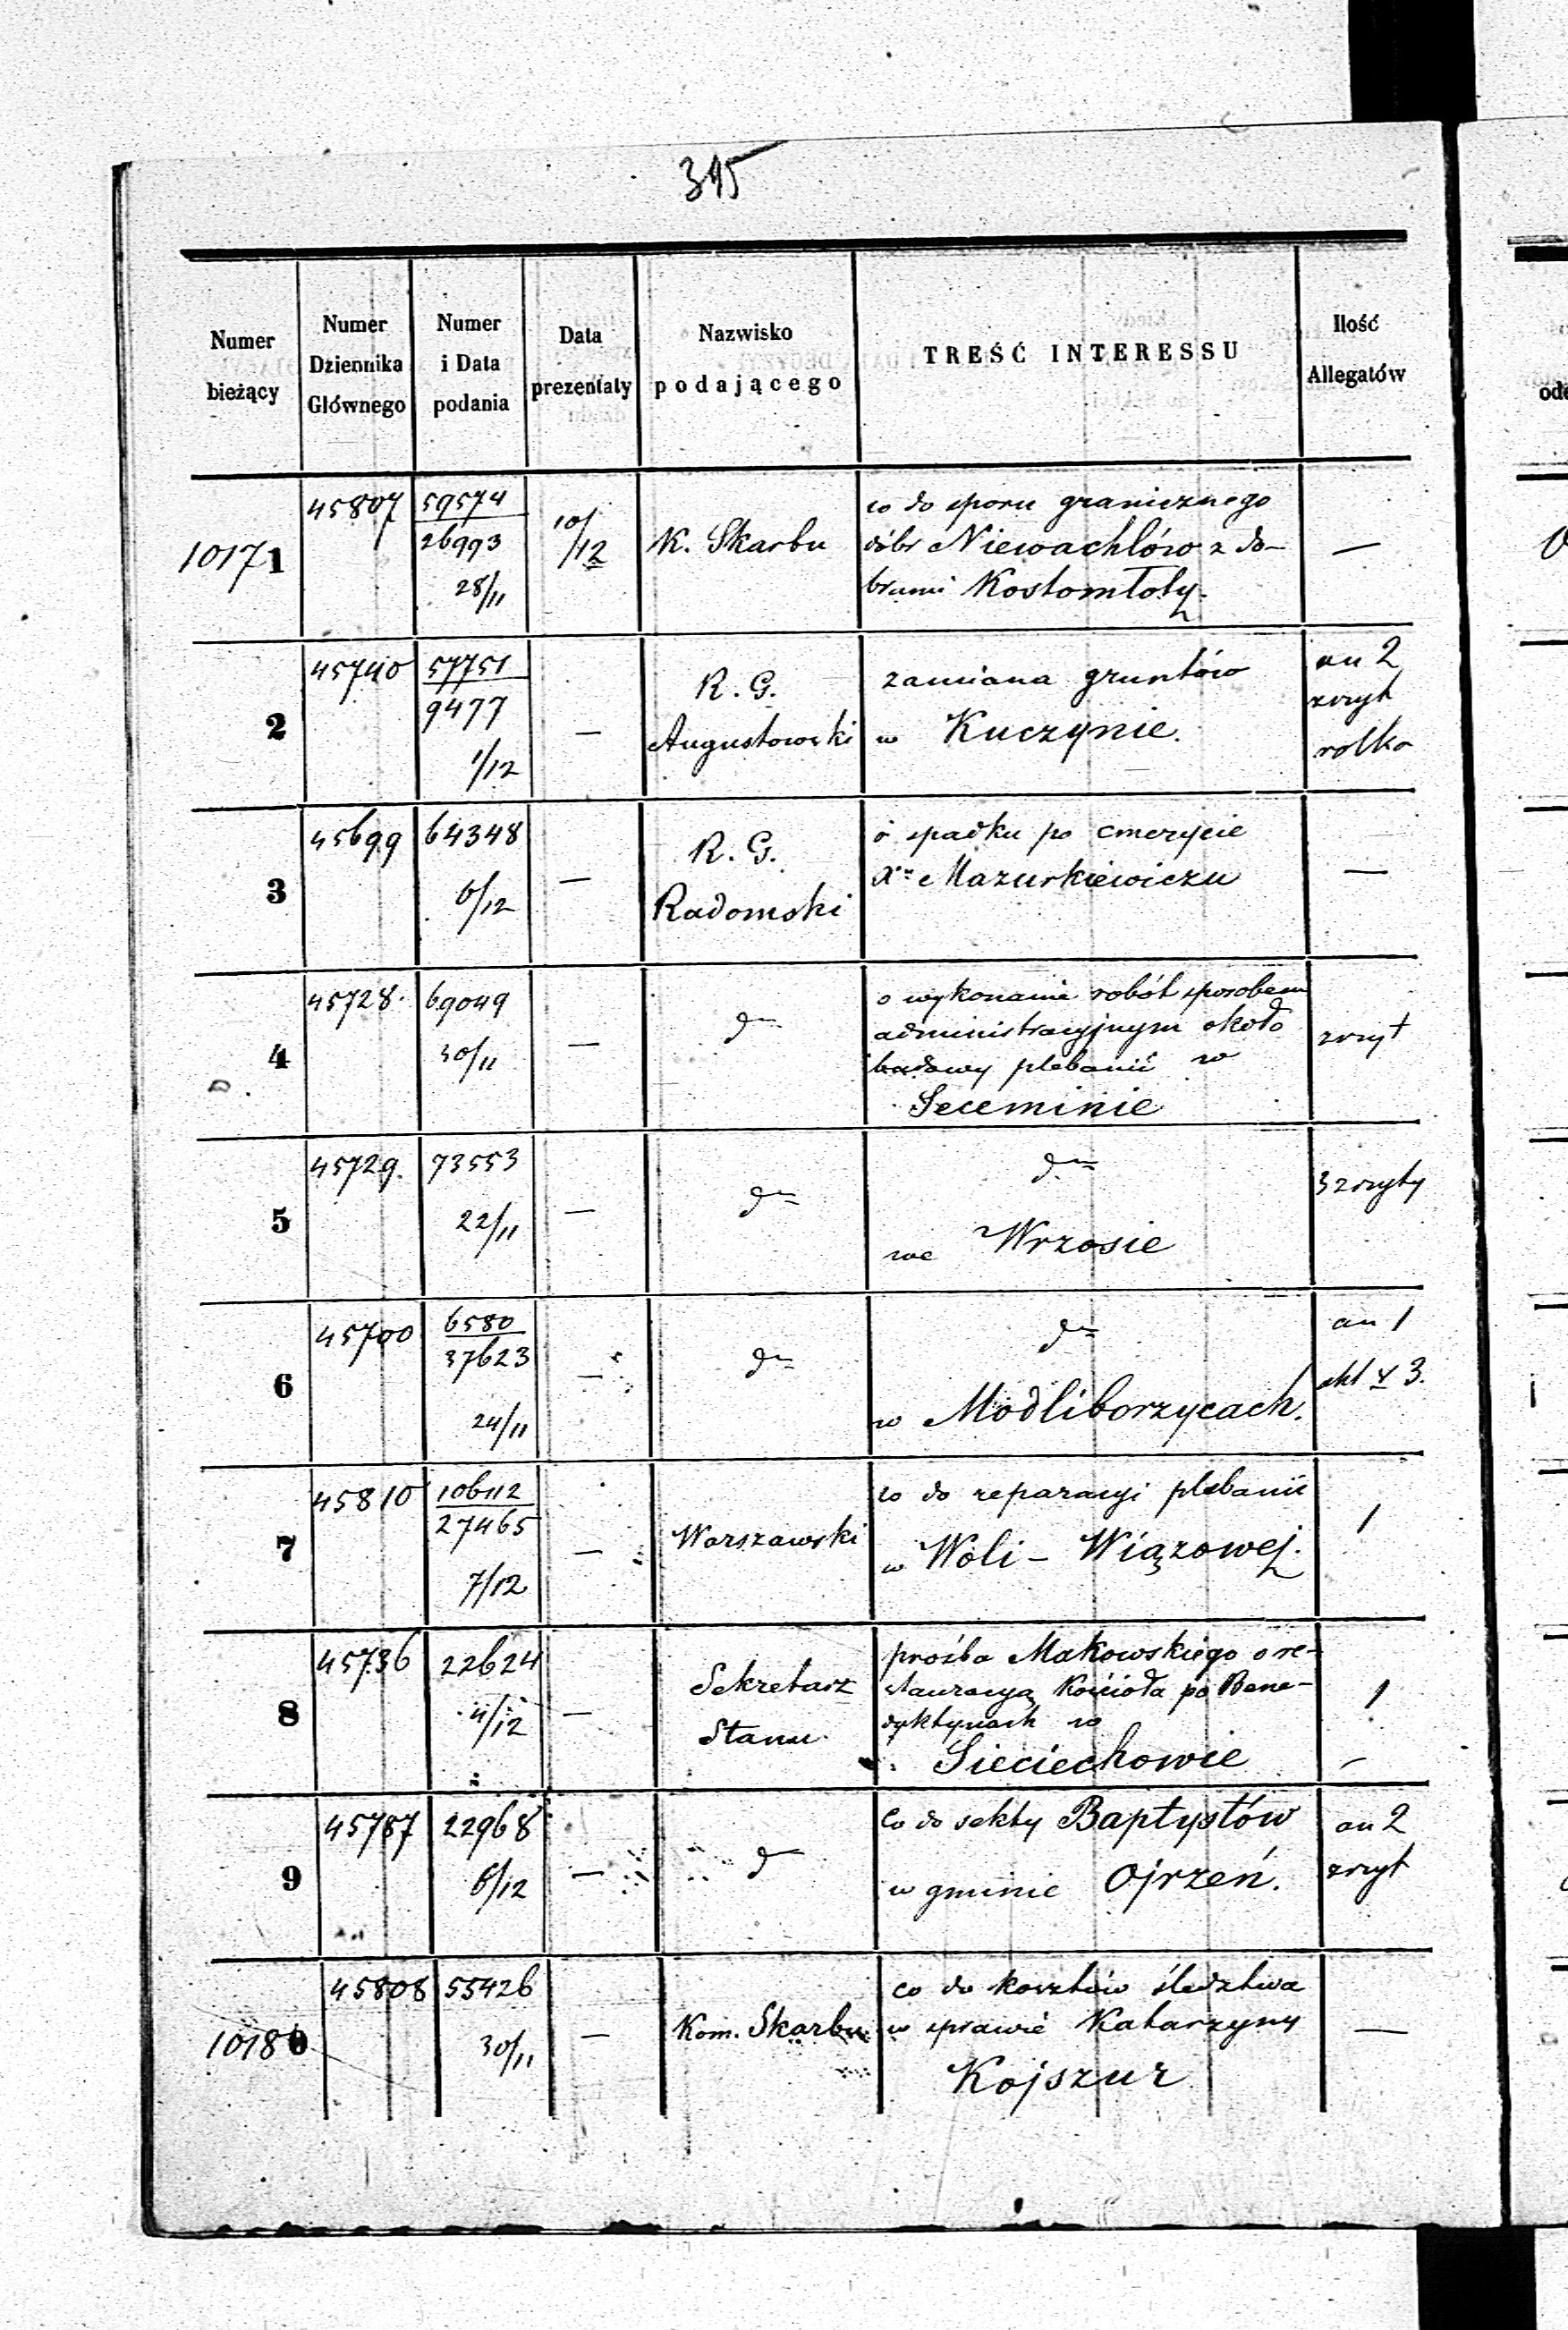 395
Numer bieżący
Numer Dziennika Głównego
Numer i Data podania
Data prezentaty
Nazwisko podającego
TREŚĆ INTERESSU
Ilość Allegatów
10171
45807
59574
26993
28/11
10/12
K. Skarbu
co do sporu granicznego
dóbr Niewachlów z do-
brami Kostomłoty.
—
2
45740
57751
9477
1/12
—
R. G.
Augustowski
zamiana gruntów
w Kuczynie.
an 2
zszyt
rolka
3
45699
64348
6/12
—
R. G.
Radomski
o spadku po emerycie
Xs. Mazurkiewiczu
—
4
45728.
69049
30/11
—
do
o wykonanie robót sposobem
administracyjnym około
budowy plebanii w
Seceminie
zszyt
5
45729.
73553
22/11
—
do
do
we Wrzosie
3 zszyty
6
45700
6580
37623
24/11
—
do
do
w Modliborzycach.
an 1
akt v 3.
7
45810
106112
27465
7/12
—
Warszawski
co do reparacyi plebanii
w Woli - Wiązowej.
1
8
45736
22624
4/12
—
Sekretarz
Stanu
prośba Makowskiego o re-
stauracyą Kościoła po Bene-
dyktynach w
Sieciechowie
1
9
45787
22968
6/12
—
do
Co do sekty Baptystów
w gminie Ojrzeń.
an 2
zszyt
10180
45808
55426
30/11
—
Kom. Skarbu
co do kosztów śledztwa
w sprawie Katarzyny
Kojszur
—